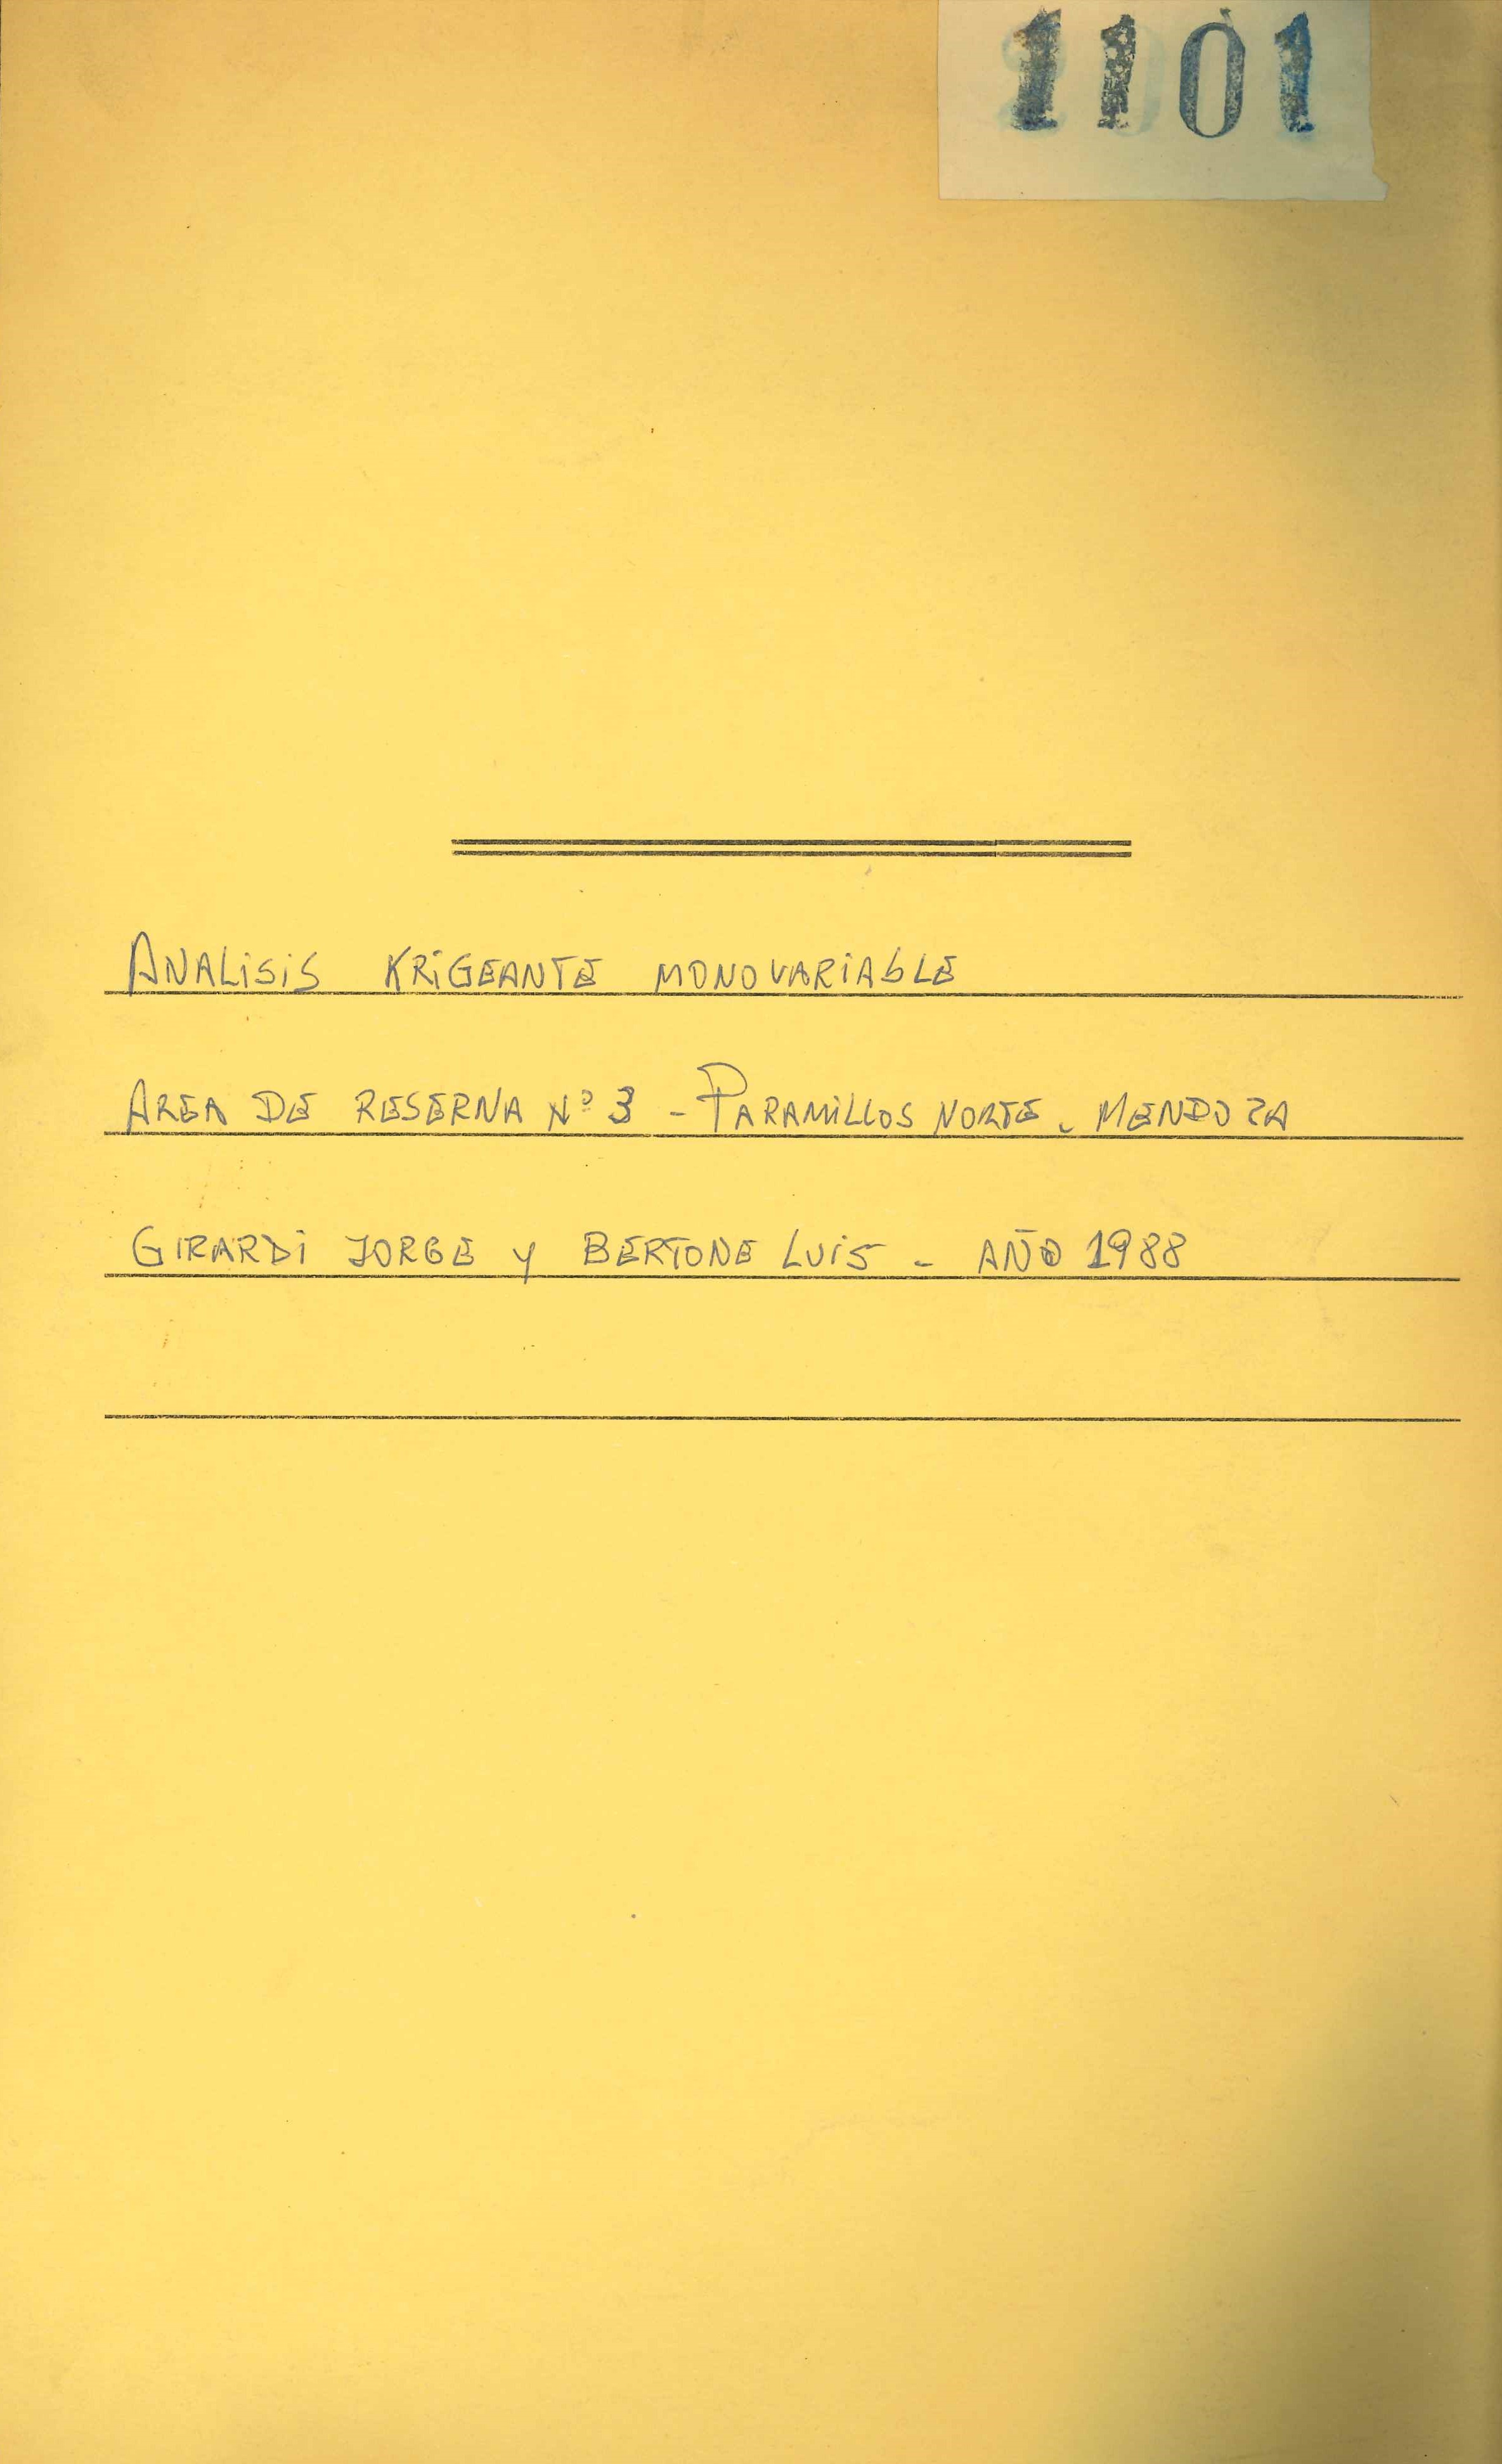 1101
ANALISIS KRIGEANTE MONOVARIABLE
AREA DE RESERVA Nº 3 - PARAMILLOS NORTE - MENDOZA
GIRARDI JORGE y BERTONE LUIS - AÑO 1988